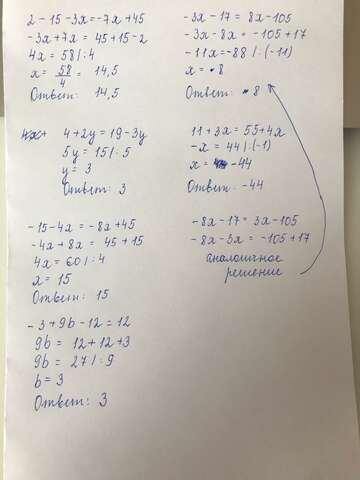 2 - 15 - 3x = -7x + 45
-3x + 7x = 45 + 15 - 2
4x = 58 | : 4
x = 58/4 = 14,5
Ответ: 14,5
4 + 2y = 19 - 3y
5y = 15 | : 5
y = 3
Ответ: 3
-15 - 4x = -8x + 45
-4x + 8x = 45 + 15
4x = 60 | : 4
x = 15
Ответ: 15
-3 + 9b - 12 = 12
9b = 12 + 12 + 3
9b = 27 | : 9
b = 3
Ответ: 3
-3x - 17 = 8x - 105
-3x - 8x = -105 + 17
-11x = -88 | : (-11)
x = 8
Ответ: 8
11 + 3x = 55 + 4x
-x = 44 | : (-1)
x = -44
Ответ: -44
-8x - 17 = 3x - 105
-8x - 3x = -105 + 17
аналогичное
решение